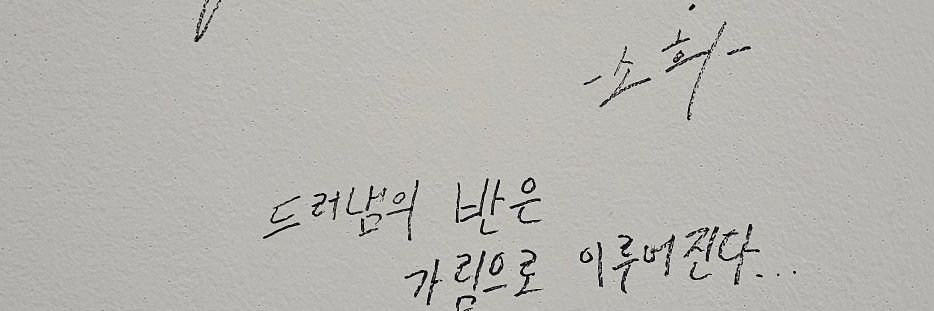 -소희-
드러냄의 반은
가림으로 이루어진다...